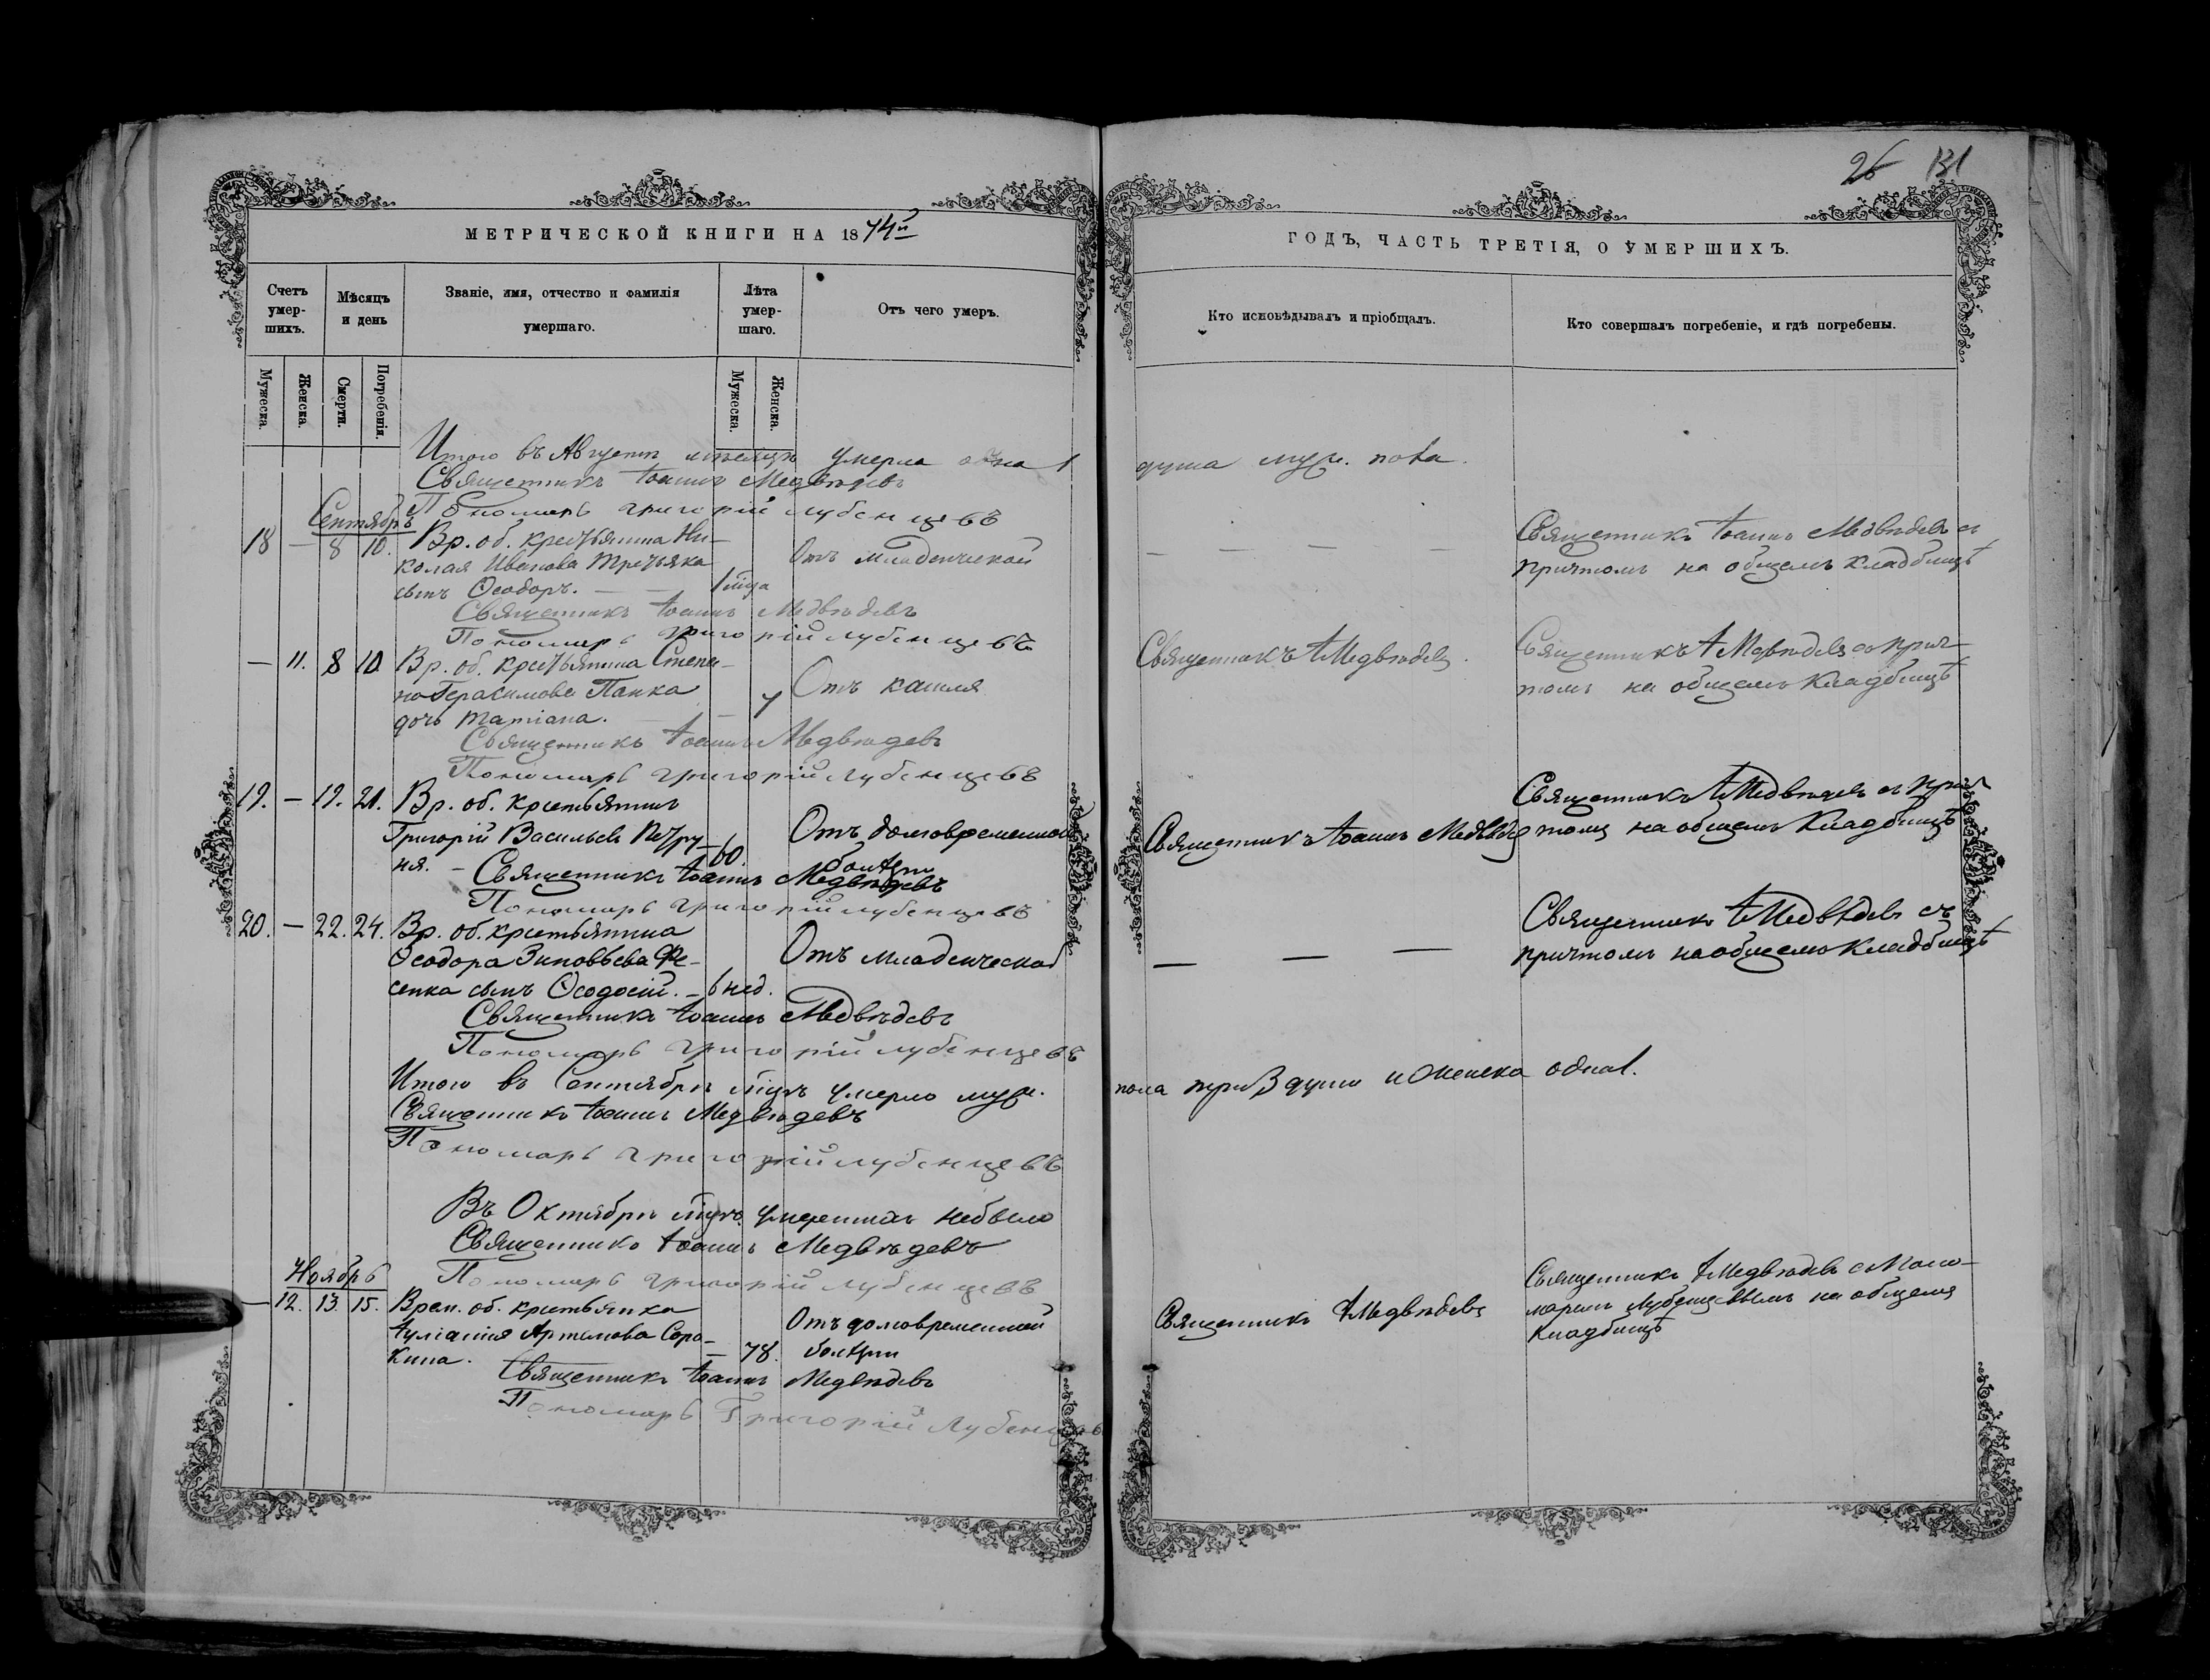 26 131
МЕТРИЧЕСКОЙ КНИГИ НА 1874й
ГОДЪ, ЧАСТЬ ТРЕТІЯ, О УМЕРШИХЪ.
Счетъ умер-шихъ.
Мѣсяцъ и день
Званіе, имя, отчество и фамилія умершаго.
Лѣта умер-шаго.
Отъ чего умеръ.
Кто исповѣдывалъ и пріобщалъ.
Кто совершалъ погребеніе, и гдѣ погребены.
Мужеска.
Женска.
Смерти.
Погребенія.
Мужеска.
Женска.
Итого въ Августѣ мѣсяцѣ умерла одна 1 душа муж. пола.
Священникъ Іоаннъ Медвѣдевъ
Пономарь Григорій Лубенцевъ
Сентябрь
18 — 8 10. Вр. об. крестьянина Ни- Священникъ Іоаннъ Медвѣдевъ съ
колая Иванова Третьяка Отъ младенческой — — — — причтомъ на общемъ кладбищѣ
сынъ Ѳеодоръ. — — 1 мца
Священникъ Іоаннъ Медвѣдевъ
Пономарь Григорій Лубенцевъ
— 11. 8 10 Вр. об. крестьянина Степа- Священникъ І Медвѣдевъ. Священникъ І Медвѣдевъ съ прич-
на Герасимова Панка Отъ кашля томъ на общемъ кладбищѣ
дочь Татіана. — —
Священникъ Іоаннъ Медвѣдевъ
Пономарь Григорій Лубенцевъ
19. — 19. 21. Вр. об. крестьянинъ Священникъ І Медвѣдевъ съ прич
Григорій Васильевъ Петру- 60. Отъ долговременной Священникъ Іоаннъ Медвѣдевъ томъ на общемъ кладбищѣ
ня. — болѣзни
Священникъ Іоаннъ Медвѣдевъ
Пономарь Григорій Лубенцевъ
20. — 22. 24. Вр. об. крестьянина Священникъ І Медвѣдевъ съ
Ѳеодора Зиновьева Фе- Отъ младенческой — — — причтомъ на общемъ кладбищѣ
сенка сынъ Ѳеодосій. — 6 нед.
Священникъ Іоаннъ Медвѣдевъ
Пономарь Григорій Лубенцевъ
Итого въ Сентябрѣ мцѣ умерло муж. пола три 3 души и женска одна 1.
Священникъ Іоаннъ Медвѣдевъ
Пономарь Григорій Лубенцевъ
Въ Октябрѣ мцѣ умершихъ небыло
Священникъ Іоаннъ Медвѣдевъ
Пономарь Григорій Лубенцевъ
Ноябрь
— 12. 13. 15. Врем. об. крестьянка Священникъ І Медвѣдевъ Священникъ І Медвѣдевъ съ Поно-
Іуліанія Артемова Соро- Отъ долговременной маремъ Лубенцевымъ на общемъ
кина. — 78. болѣзни кладбищѣ
Священникъ Іоаннъ Медвѣдевъ
Пономарь Григорій Лубенцевъ